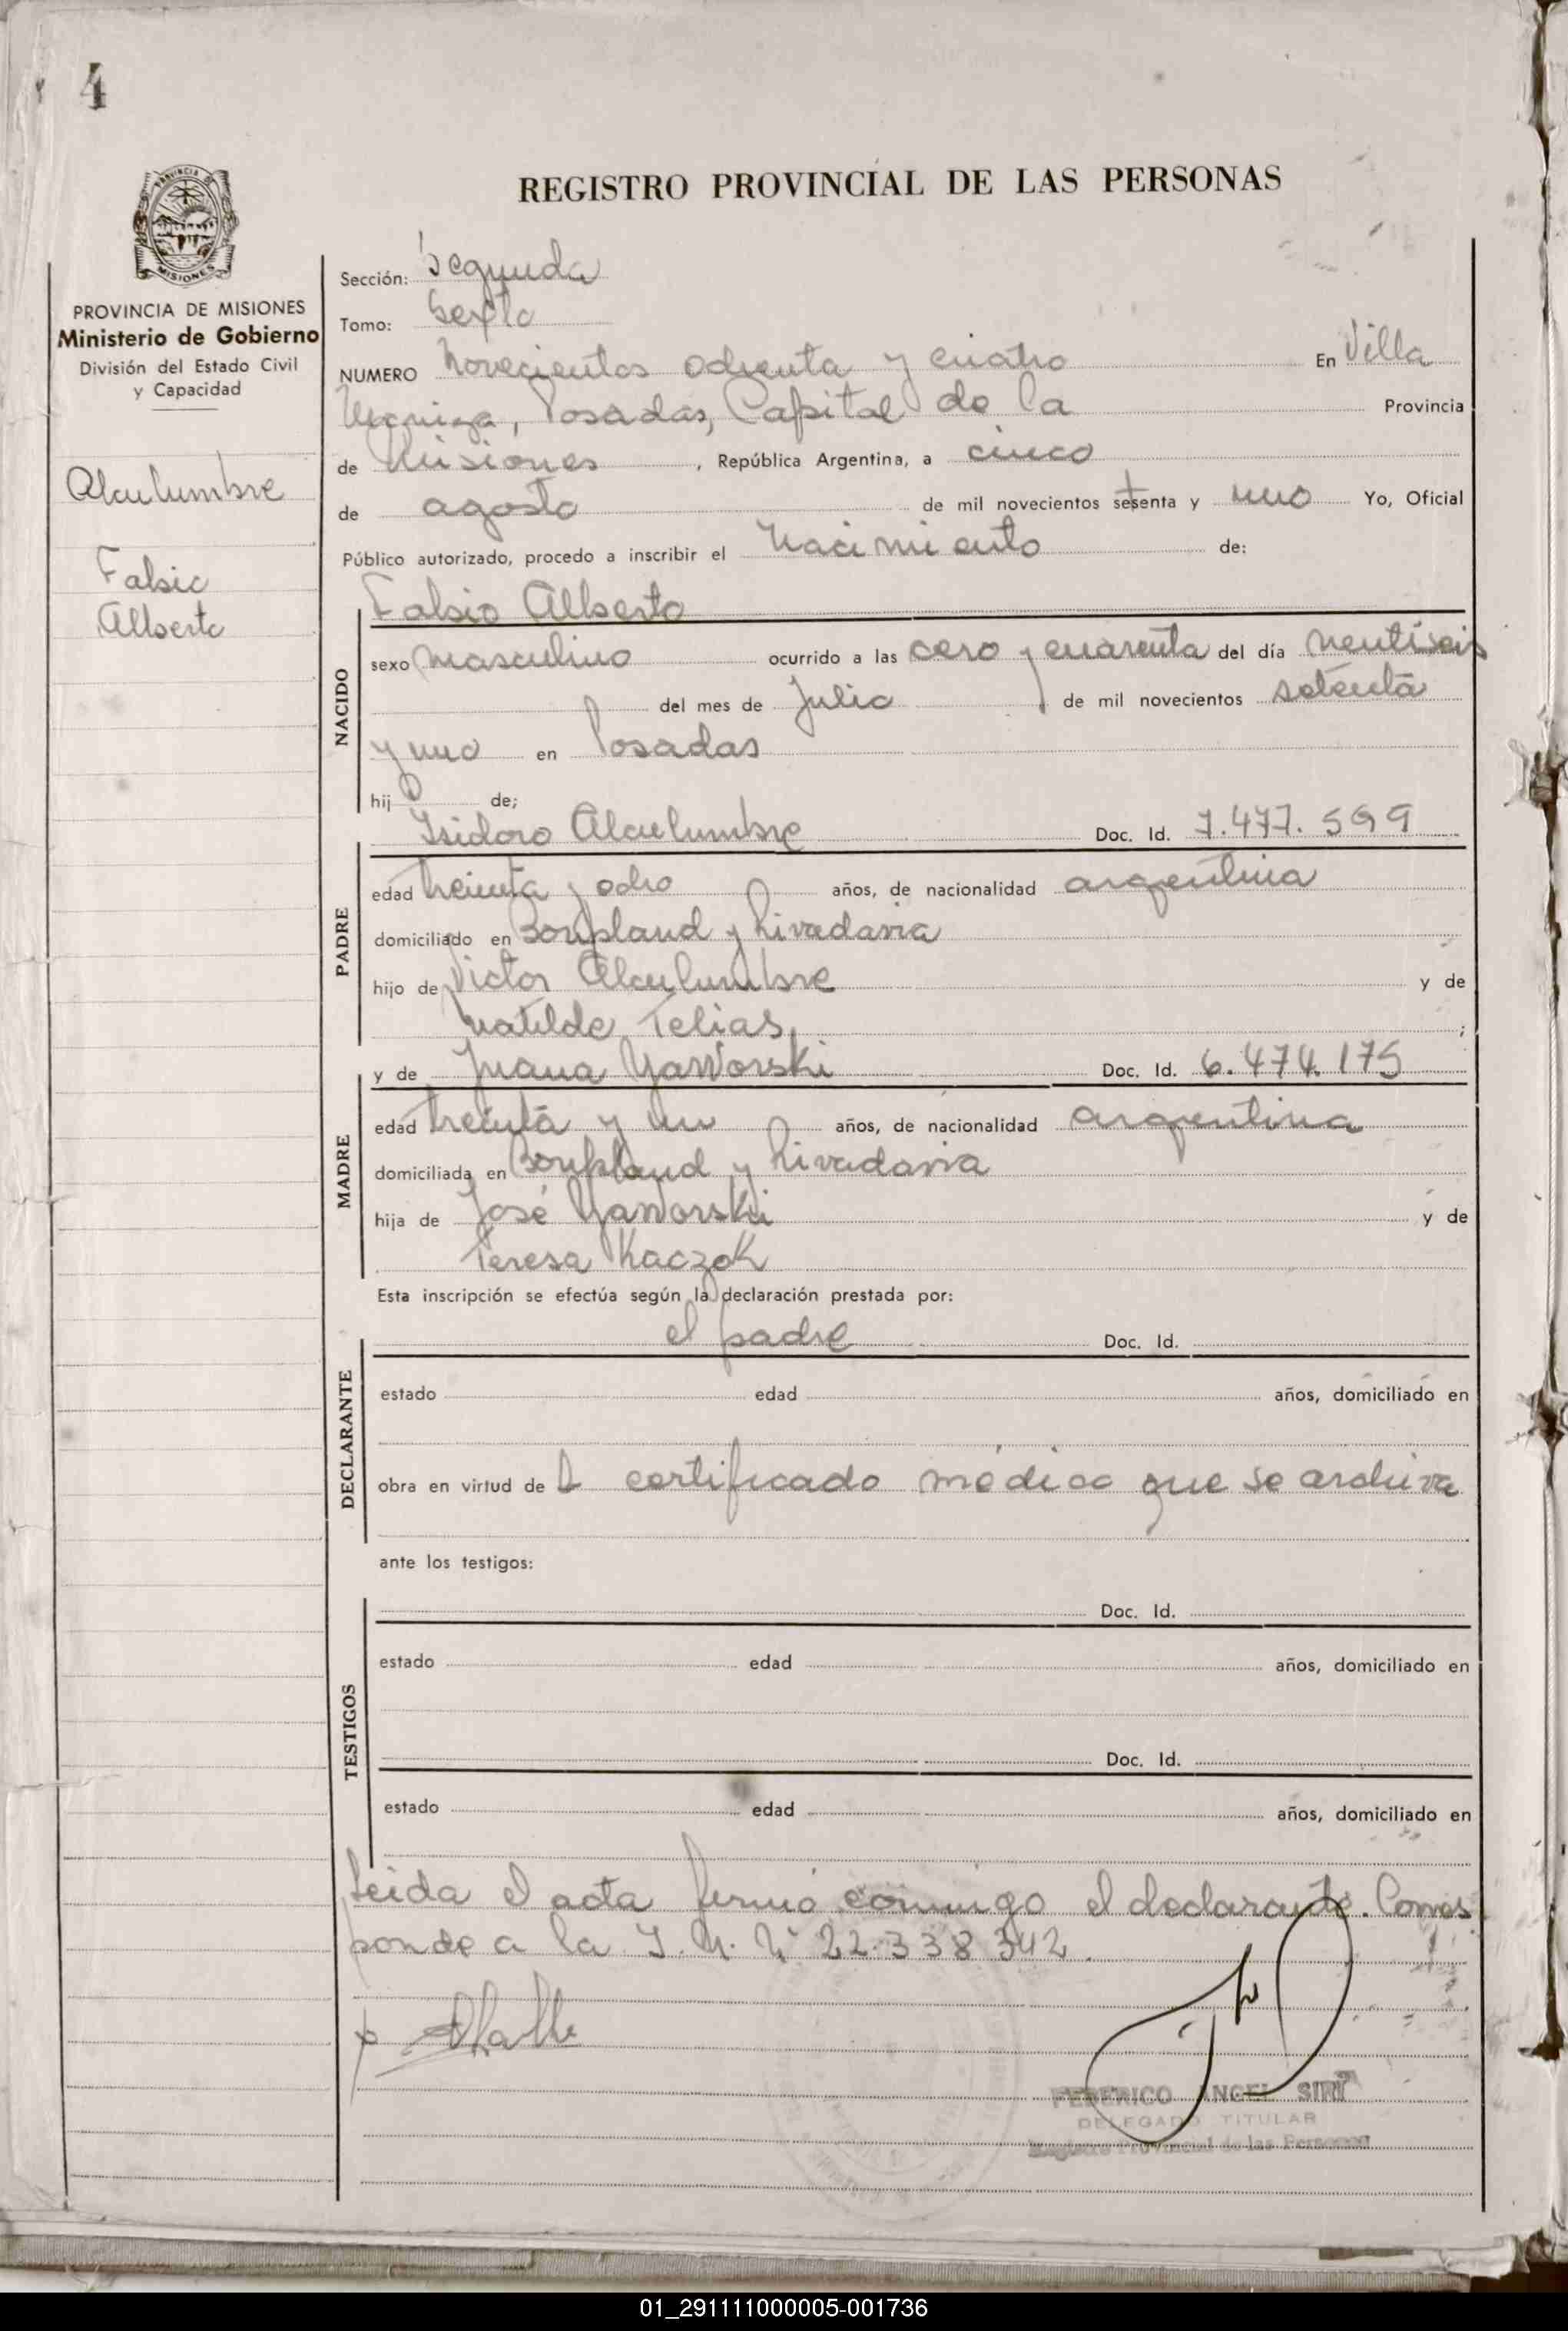 4
PROVINCIA DE
MISIONES
REGISTRO PROVINCIAL DE LAS PERSONAS
PROVINCIA DE MISIONES
Ministerio de Gobierno
División del Estado Civil
y Capacidad
Alculumbre
Fabio
Alberto
Sección: Segunda
Tomo: Sexto
NUMERO Novecientos ochenta y cuatro En Villa
Urquiza, Posadas, Capital de la Provincia
de Misiones, República Argentina, a cinco
de agosto de mil novecientos setenta y uno Yo, Oficial
Público autorizado, procedo a inscribir el Nacimiento de:
Fabio Alberto
NACIDO
sexo masculino ocurrido a las cero y cuarenta del día veintiseis
del mes de Julio de mil novecientos setenta
y uno en Posadas
hijo de;
Isidoro Alculumbre Doc. Id. 7.477.599
PADRE
edad treinta y ocho años, de nacionalidad argentina
domiciliado en Bonpland y Rivadavia
hijo de Victor Alculumbre y de
Matilde Telias;
y de Juana Yaworski Doc. Id. 6.474.175
MADRE
edad treinta y un años, de nacionalidad argentina
domiciliada en Bonpland y Rivadavia
hija de José Yaworski y de
Teresa Kaczok
Esta inscripción se efectúa según la declaración prestada por:
el padre Doc. Id.
DECLARANTE
estado edad años, domiciliado en
obra en virtud del certificado médico que se archiva
ante los testigos:
Doc. Id.
TESTIGOS
estado edad años, domiciliado en
Doc. Id.
estado edad años, domiciliado en
Leida el acta firmó conmigo el declarante. Corres
ponde a la I. M. Nº 22.338.342.
FEDERICO ANGEL SIRI
DELEGADO TITULAR
Registro Provincial de las Personas
01_291111000005-001736